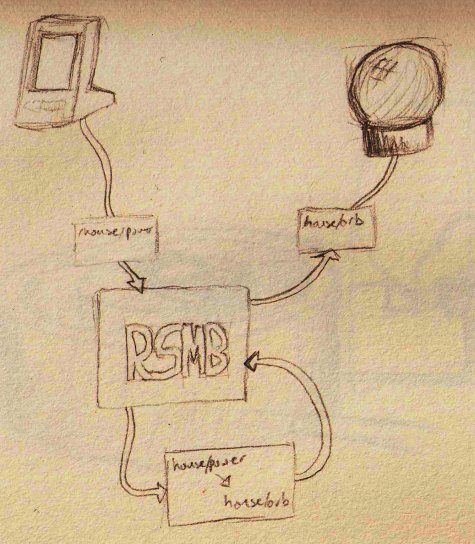 house/power
house/orb
RSMB
house/power
house/orb